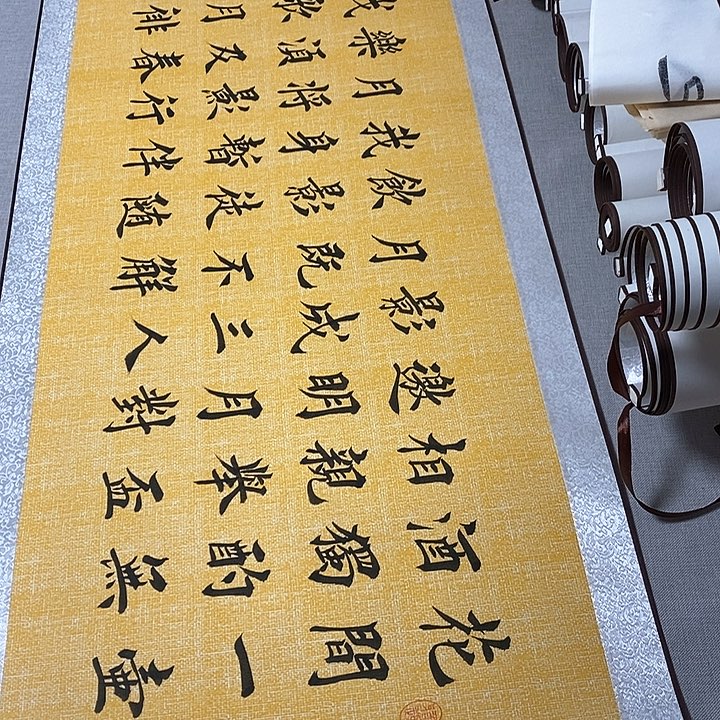 花間一壺
酒獨酌無
相親舉盃
邀明月對
影成三人
月既不解
飲影徒隨
我身暫伴
月將影行
樂須及春
我歌月徘